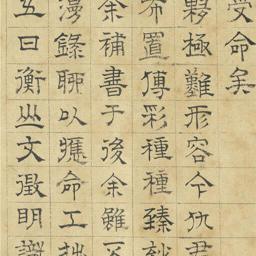 受命矣
夥極難形容今仇君
布置傅彩種種臻玅
余補書于後余雖不
漫錄聊以應命工拙
五日衡山文徵明識